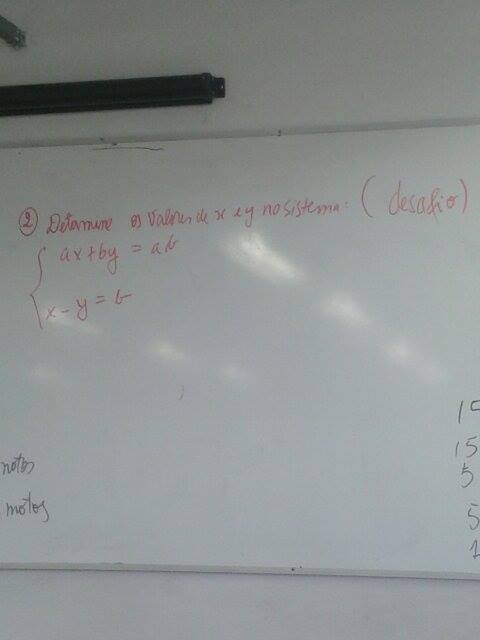 ② Determine os valores de x e y no sistema. (desafio)
ax + by = ab
x - y = b
motos
motos
15
5
5